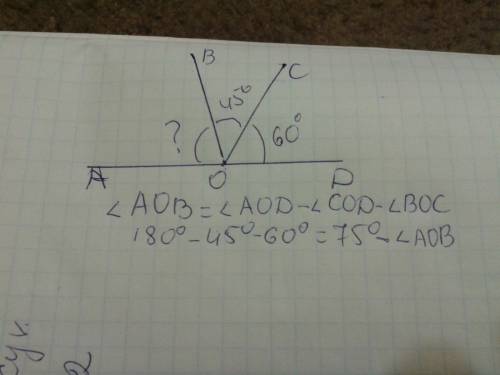 B
C
45°
?
60°
A
O
D
∠AOB=∠AOD-∠COD-∠BOC
180°-45°-60°=75°-∠AOB
2